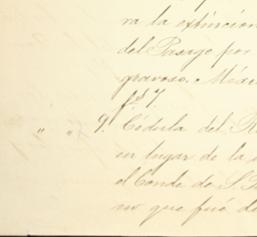 ra la extincion
del Pasage por
gravoso. Mad
fol 7.
" " 9. Cédula del R
en lugar de la
el Conde de S.
no que fué de